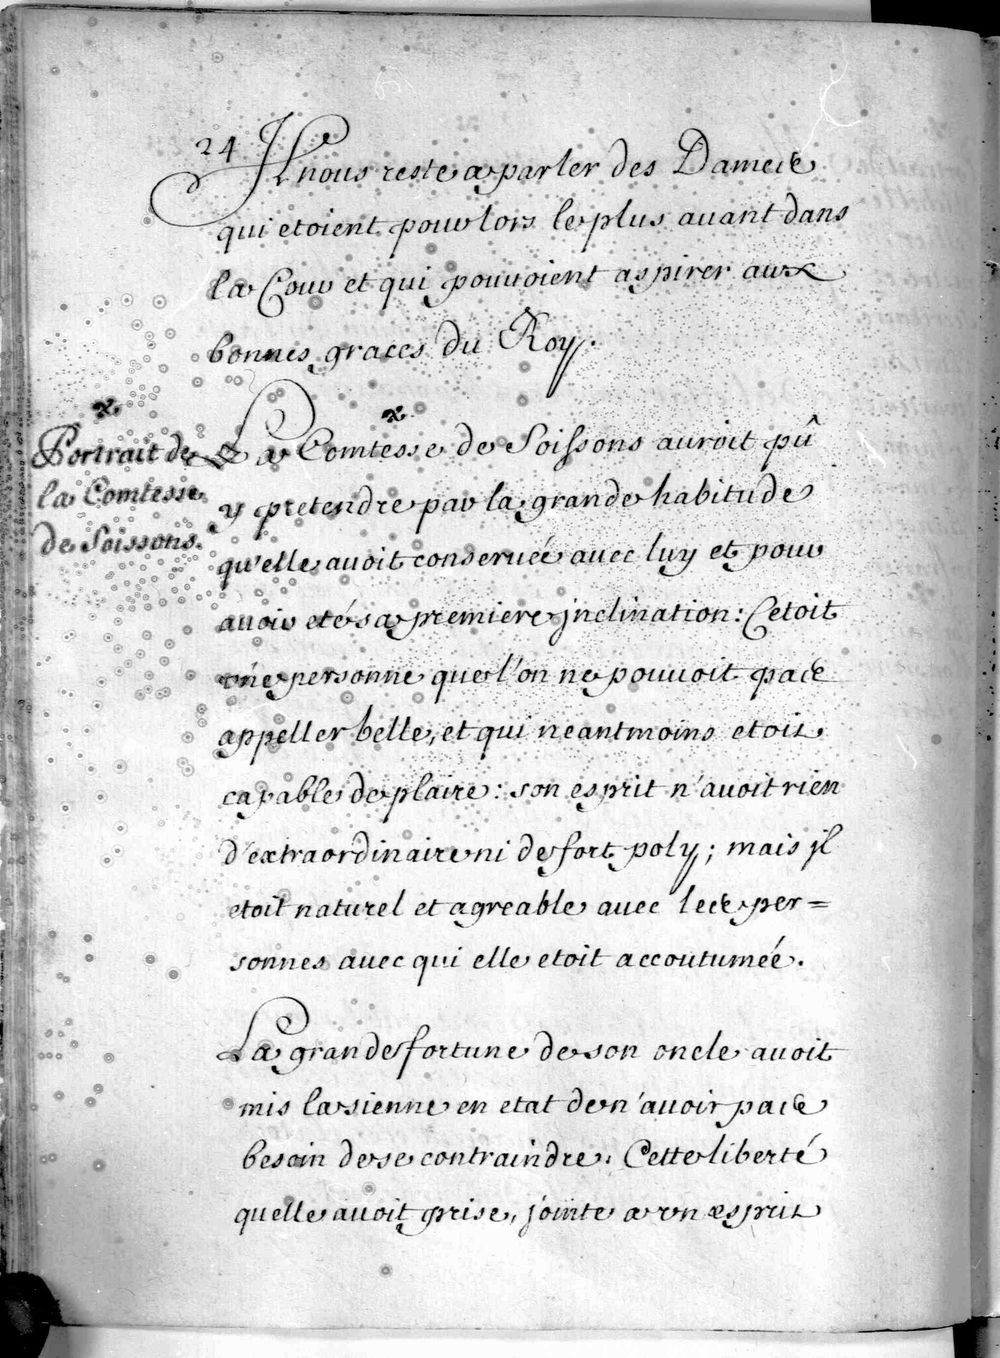 24
Il nous reste a parler des Dames
qui etoient pour lors le plus auant dans
la Cour et qui pouuoient aspirer aux
bonnes graces du Roy.
Portrait de
la Comtesse
de Soissons.
La Comtesse de Soissons auroit pû
y pretendre par la grande habitude
qu'elle auoit conseruée auec luy et pour
auoir eté sa premiere jnclination: Cetoit
vne personne que l'on ne pouuoit pas
appeller belle, et qui neantmoins etoit
capable de plaire: son esprit n'auoit rien
d'extraordinaire ni de fort poly; mais jl
etoit naturel et agreable auec les per=
sonnes auec qui elle etoit accoutumée.
La grande fortune de son oncle auoit
mis la sienne en etat de n'auoir pas
besoin de se contraindre. Cette liberté
quelle auoit prise, jointe a vn esprit